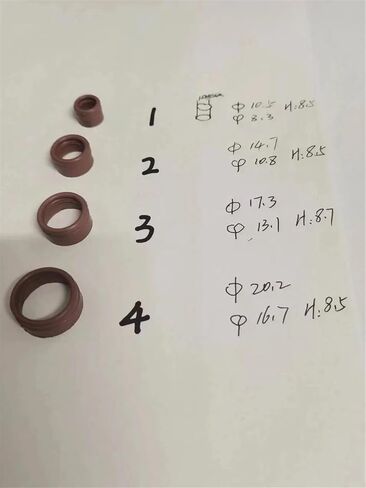 1
Φ 10.5 H:8.5
φ 8.3
2
Φ 14.7
φ 10.8 H:8.5
3
Φ 17.3
φ 13.1 H:8.7
4
Φ 20.2
φ 16.7 H:8.5